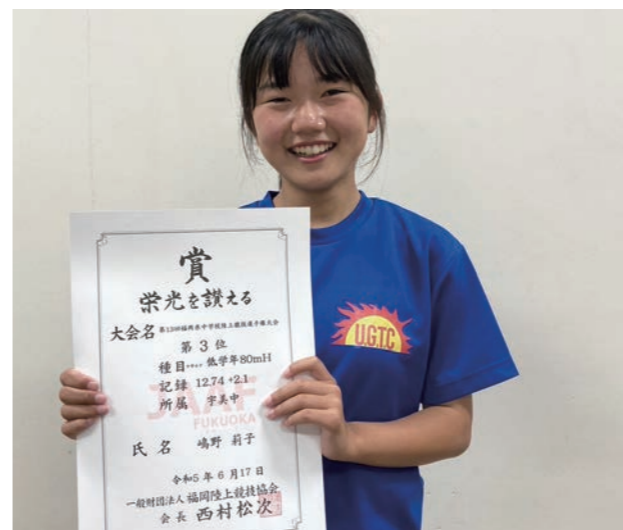 賞
栄光を讃える
大会名 第13回福岡県中学校陸上競技選手権大会
第 3 位
種目 低学年80mH
記録 12.74 +2.1
所属 宇美中
JAAF
FUKUOKA
氏 名 嶋野 莉子
令和5 年 6 月17 日
一般財団法人 福岡陸上競技協会
会 長 西村松次
U.G.T.C